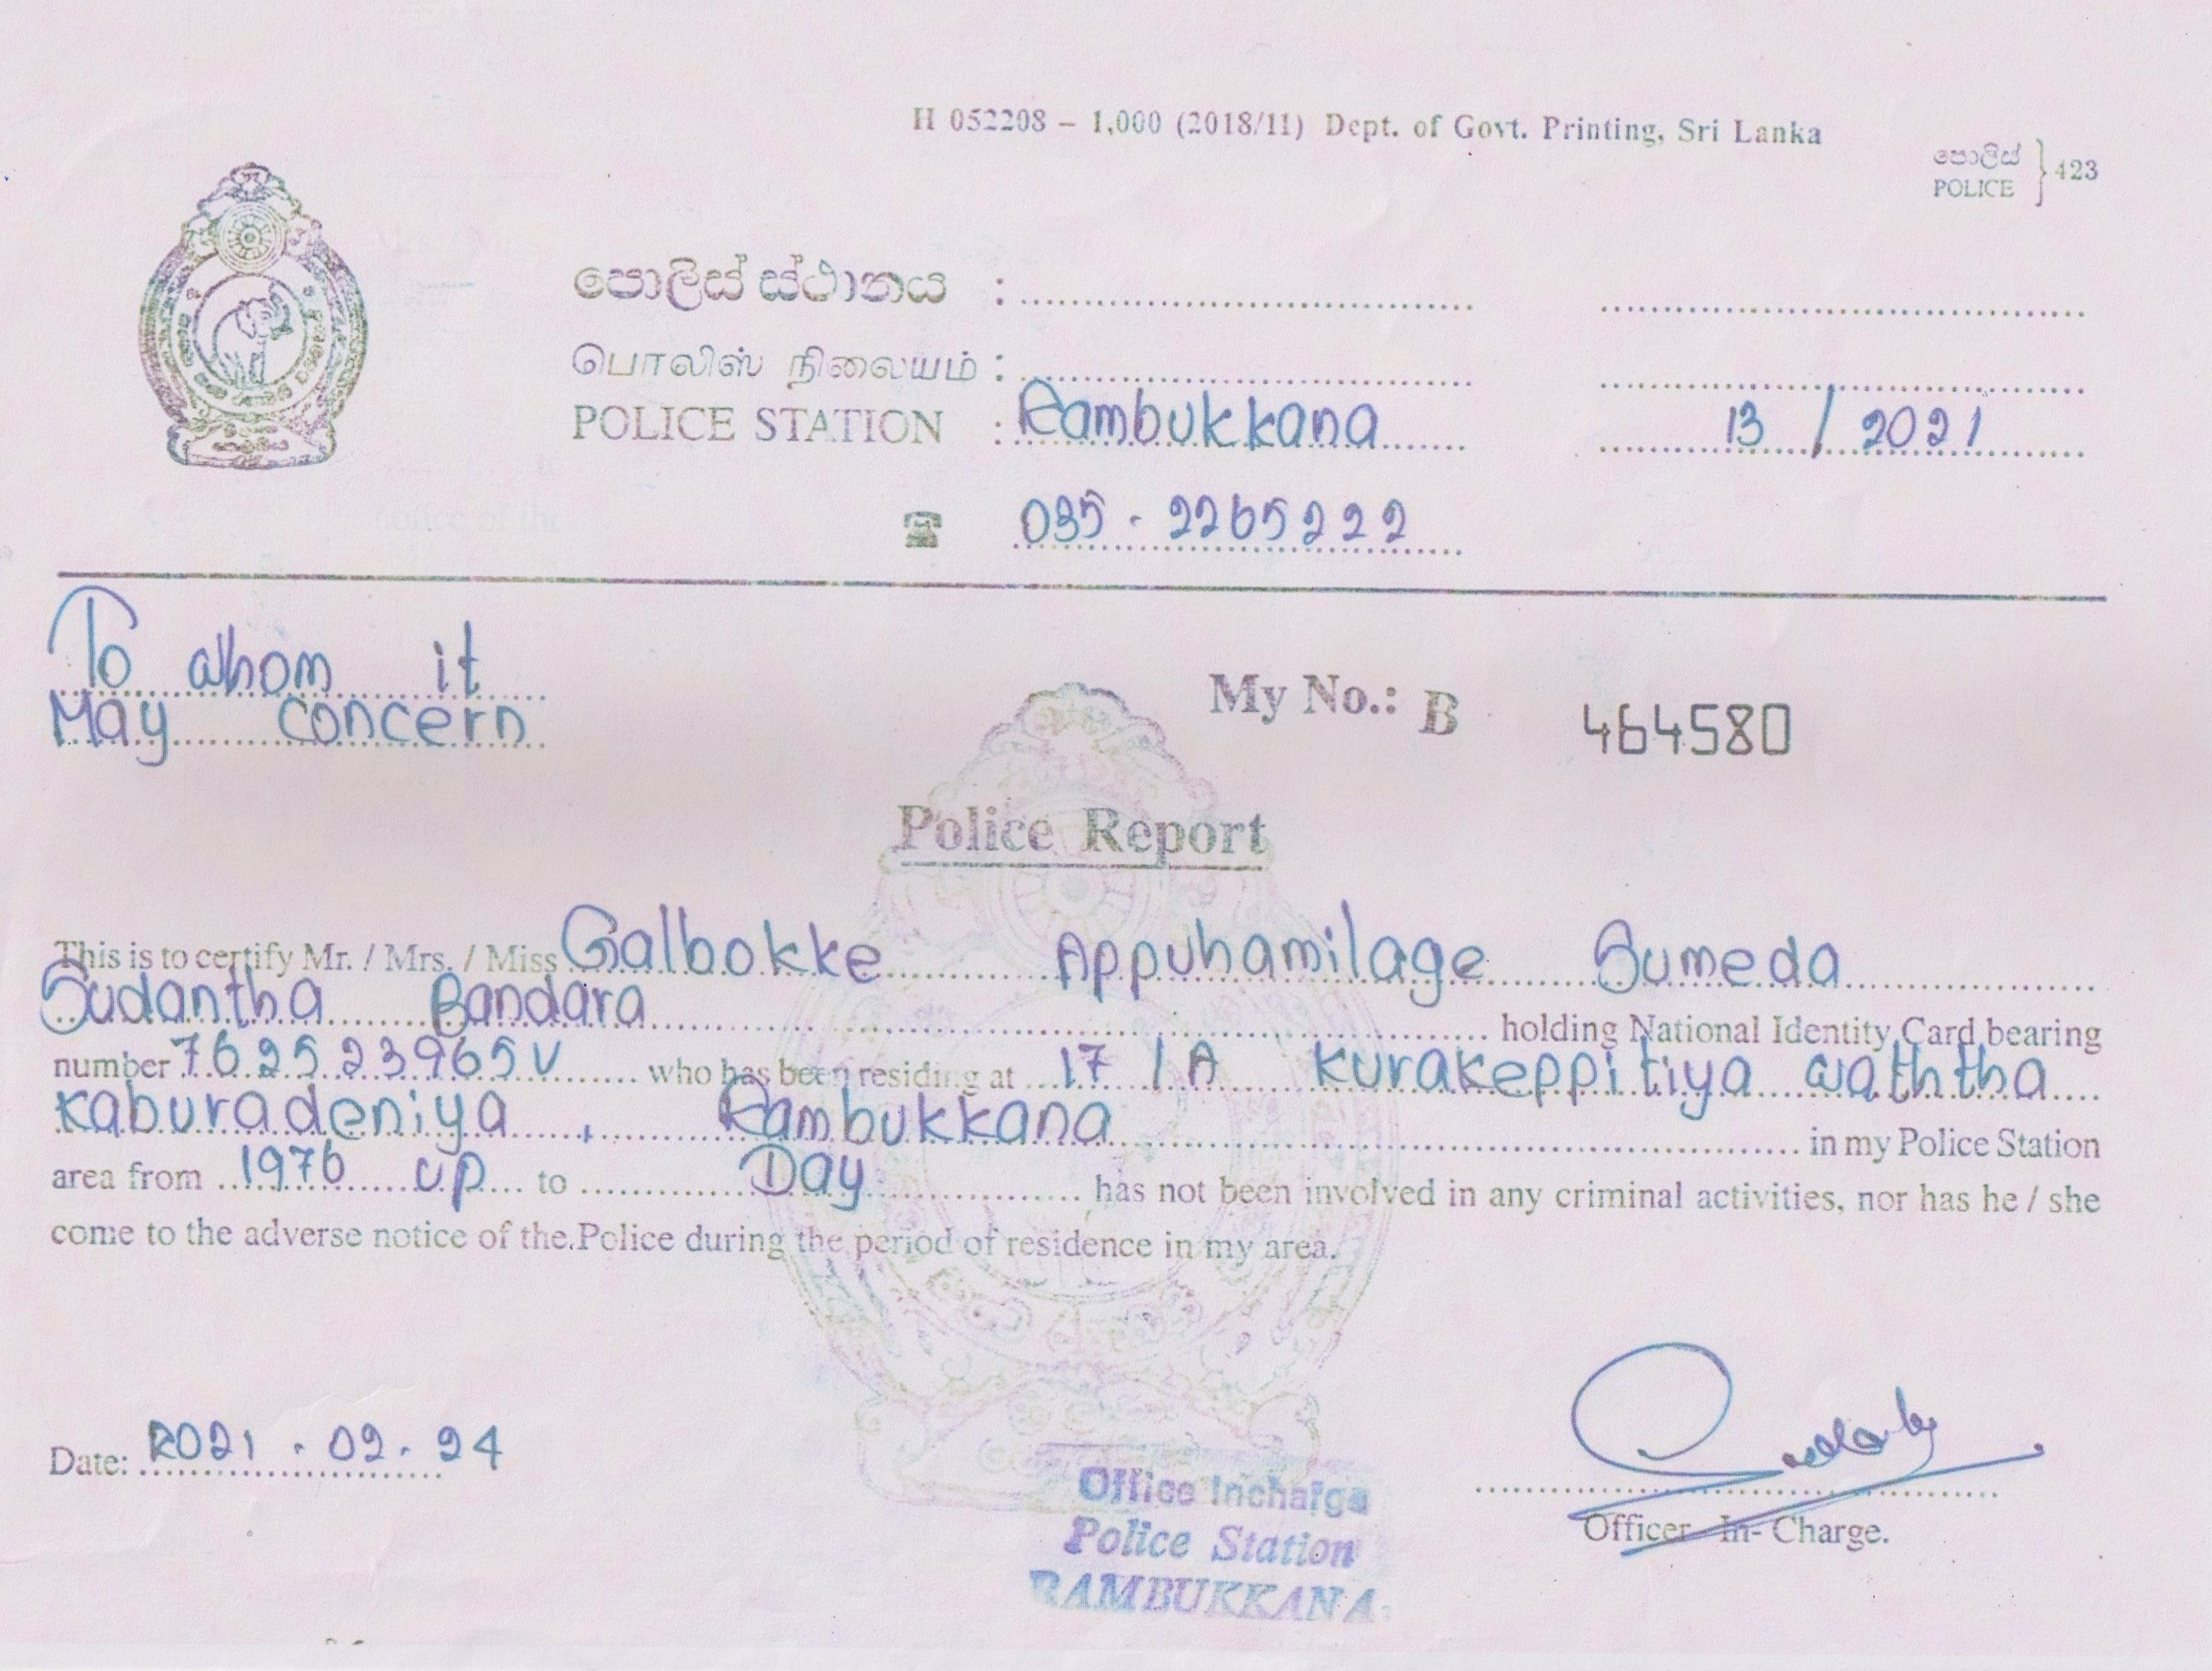 H 052208 – 1,000 (2018/11) Dept. of Govt. Printing, Sri Lanka
පොලිස්
POLICE } 423
පොලිස් ස්ථානය :
பொலிஸ் நிலையம் :
POLICE STATION : Rambukkana 13 / 2021
035 - 2265222
To whom it
May concern
My No.: B 464580
Police Report
This is to certify Mr. / Mrs. / Miss Galbokke Appuhamilage Sumeda
Sudantha Bandara holding National Identity Card bearing
number 762523965V who has been residing at 17 / A Kurakeppitiya waththa
Kaburadeniya, Rambukkana in my Police Station
area from 1976 up to Day has not been involved in any criminal activities, nor has he / she
come to the adverse notice of the Police during the period of residence in my area.
Date: 2021 . 02 . 24
Office Incharge
Police Station
RAMBUKKANA
Officer - In- Charge.